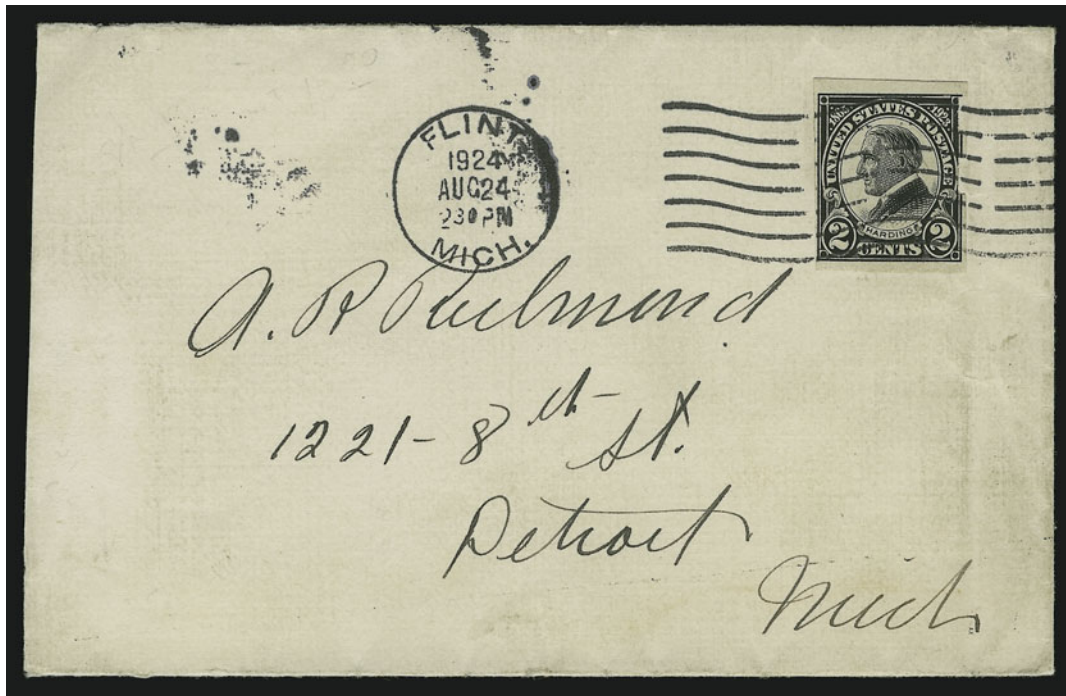 FLINT
1924
AUG 24
230 PM
MICH.
1865 1923
UNITED STATES POSTAGE
HARDING
2 CENTS 2
A. R Richmond
1221-8th St.
Detroit
Mich